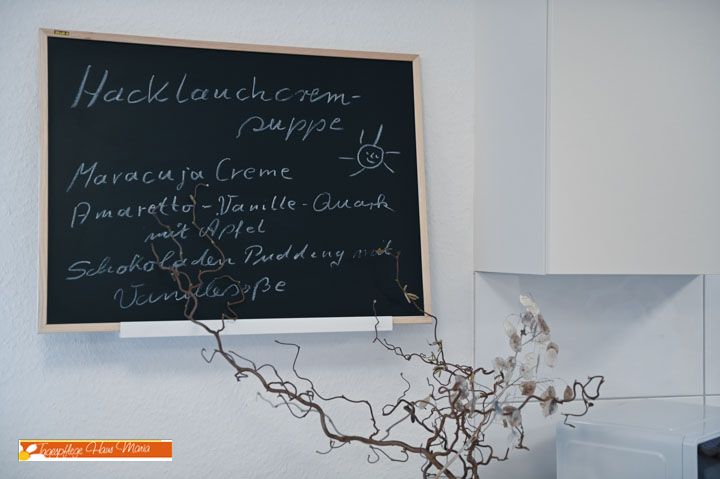 Hacklauchcrem-
suppe
Maracuja Creme
Amaretto-Vanille-Quark
mit Apfel
Schokoladen Pudding mit
Vanillesoße
Tagespflege Haus Maria